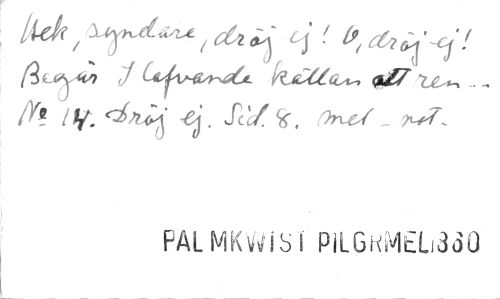 Hek, syndare, dröj ej! O, dröj ej!
Begär I lefvande källan att ren...
No 14. Dröj ej. Sid. 8. mel - not.
PALMKWIST PILGRMEL1880